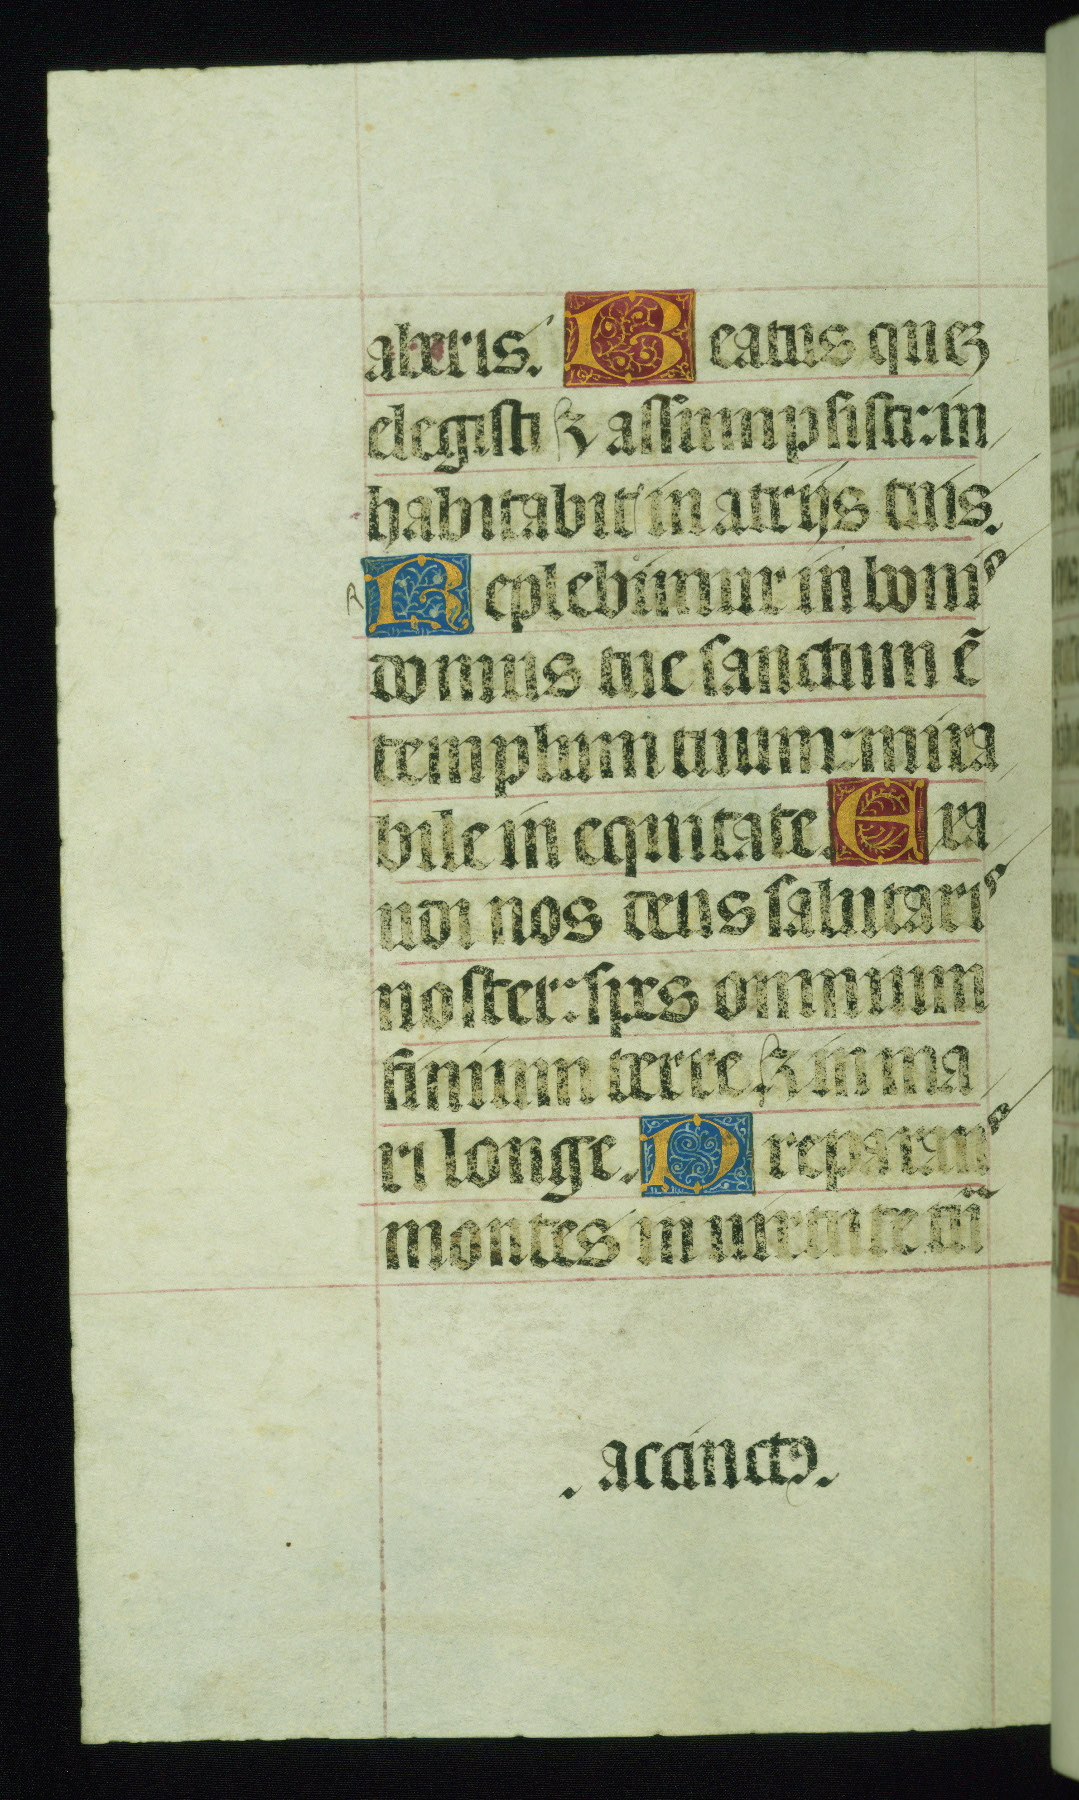 aberis. Beatus quez
elegisti ⁊ assumpsisti: in
habitabit in atrijs tuis.
R Replebimur in boniꝰ
domus tue sanctum ē
templum tuum: mira
bile in equitate. Exa
udi nos deus salutariꝰ
noster: spes omnium
finium terre ⁊ in ma
ri longe. Preparanꝰ
montes in uirtute tū
. accinctꝰ.